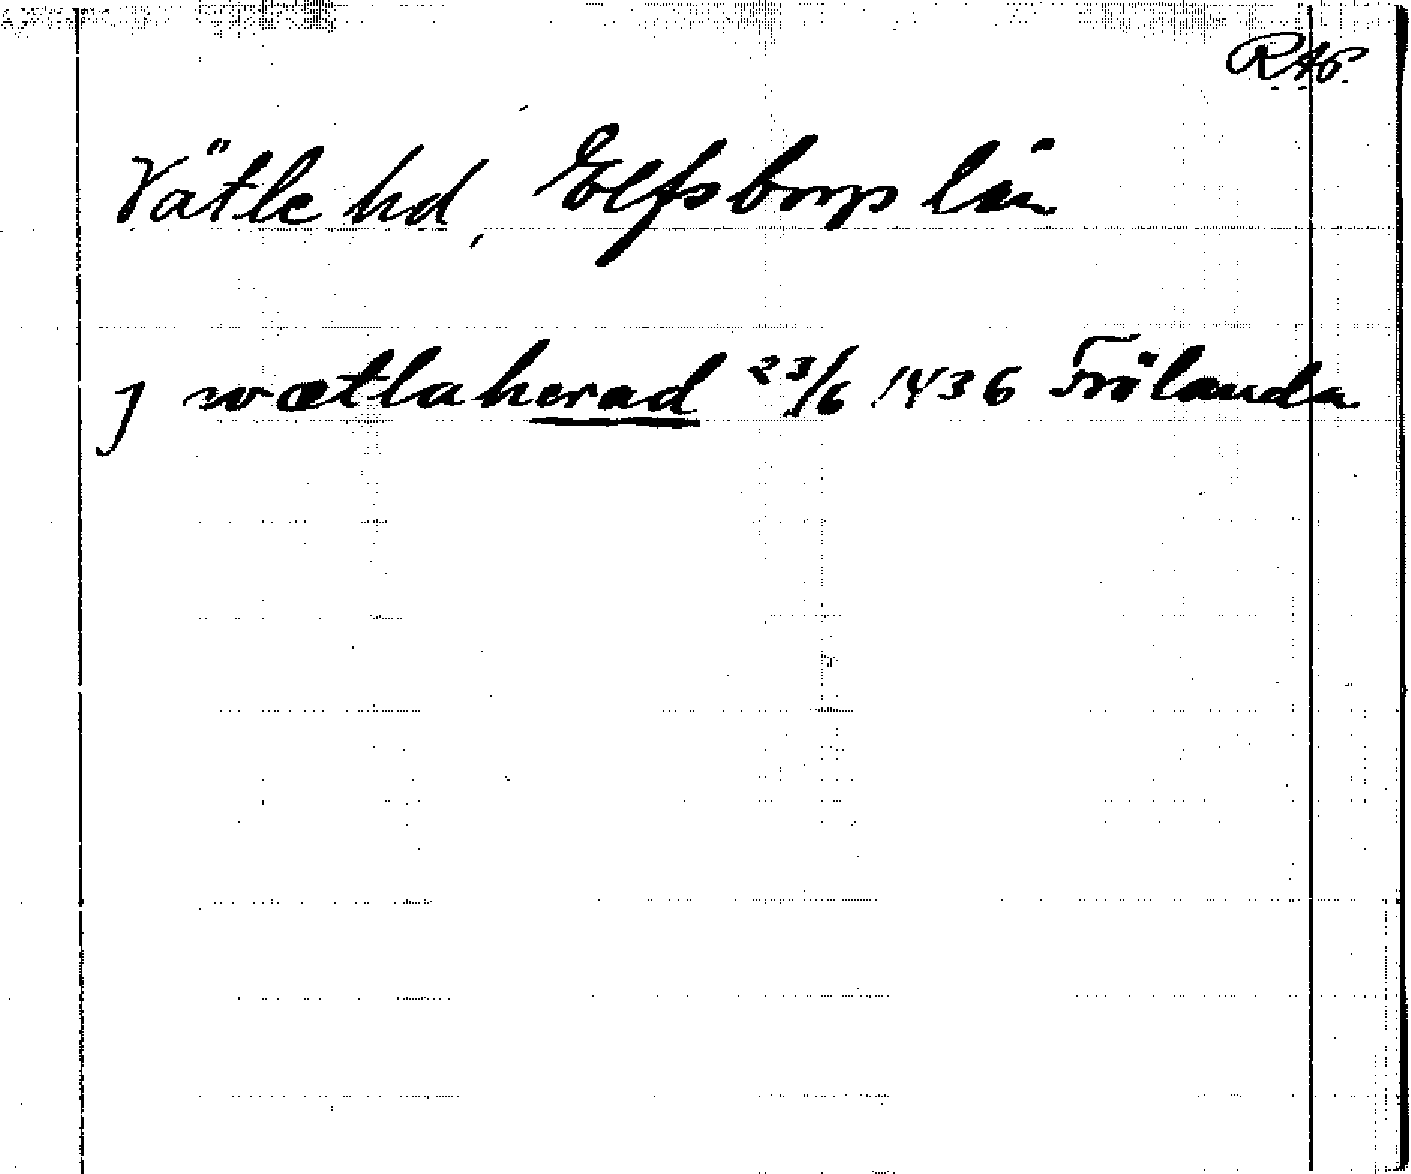 RAP.
Vätle hd, Elfsborgs län
J wætlaherad 23/6 1436 Frölanda